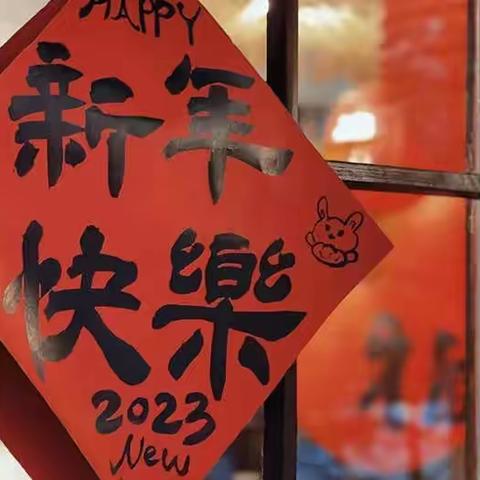 HAPPY
新年
快樂
2023
New